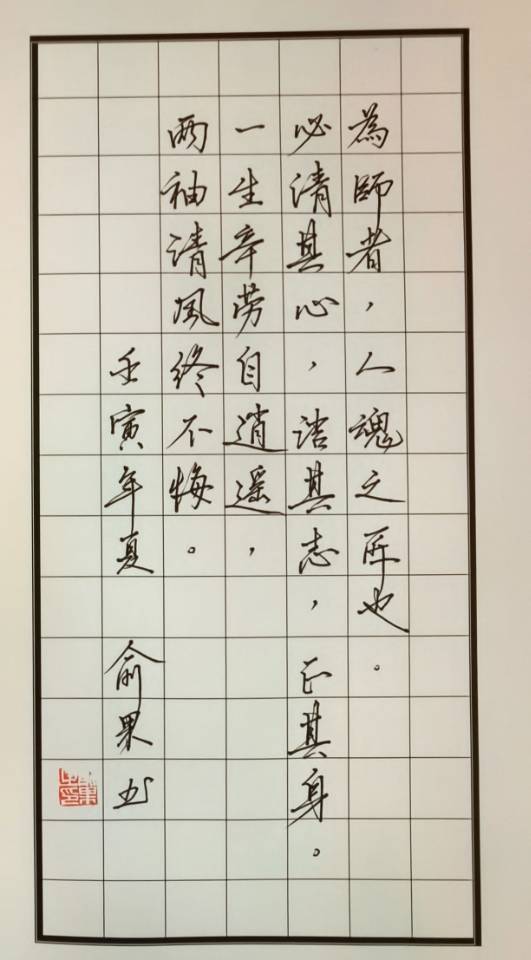 為師者，人魂之匠也。
必清其心，洁其志，正其身。
一生辛劳自逍遥，
两袖清風终不悔。
壬寅年夏 俞果书